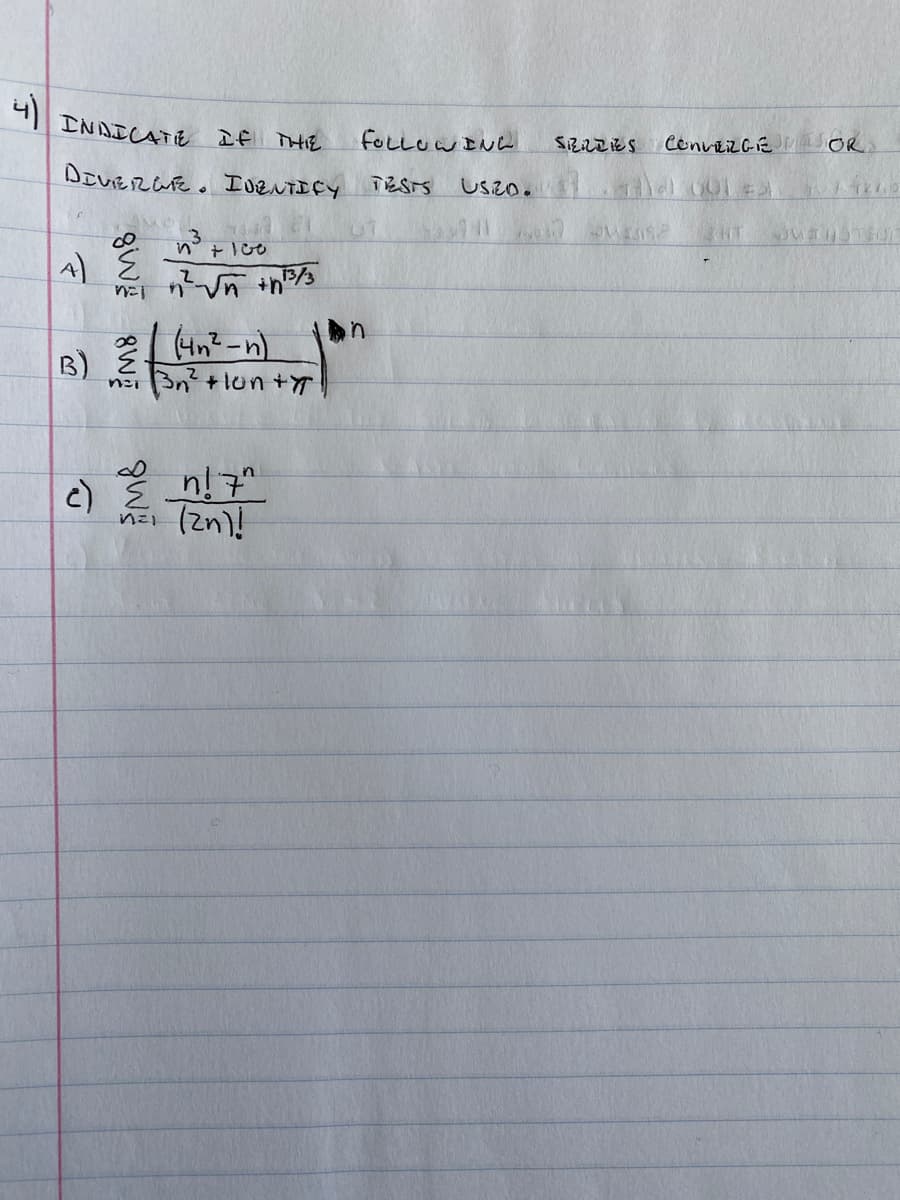 4) INDICATE IF THE FOLLOWING SERIES CONVERGE OR
DIVERGE. IDENTIFY TESTS USED.
A) ∞ Σ n=1 n³ + 100 / n²√n + n^13/3
B) ∞ Σ n=1 | (4n² - n) / 3n² + 10n + π |^n
C) ∞ Σ n=1 n! 7^n / (2n)!